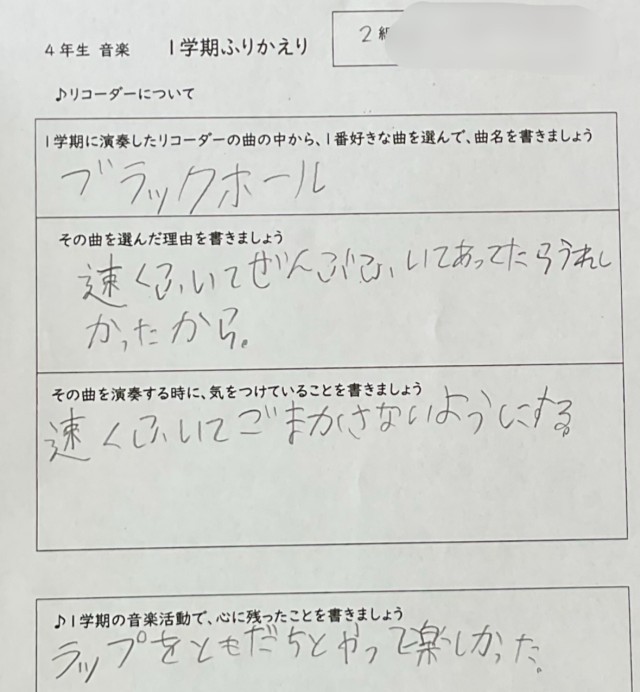 4年生 音楽 1学期ふりかえり
2組
♪リコーダーについて
1学期に演奏したリコーダーの曲の中から、1番好きな曲を選んで、曲名を書きましょう
ブラックホール
その曲を選んだ理由を書きましょう
速くふいてぜんぶふいてあってたらうれし
かったから。
その曲を演奏する時に、気をつけていることを書きましょう
速くふいてごまかさないようにする。
♪1学期の音楽活動で、心に残ったことを書きましょう
ラップをともだちとやって楽しかった。